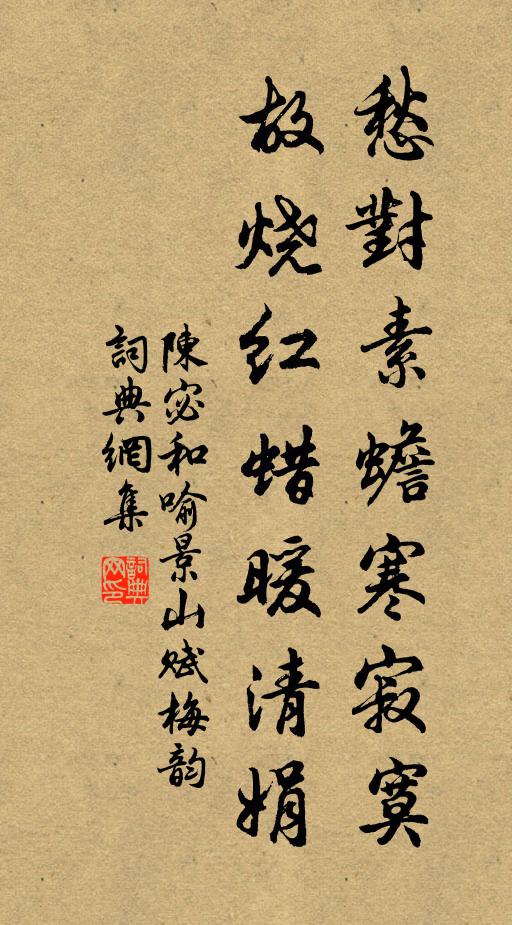 愁對素蟾寒寂寞
故烧红蜡暖清娟
陳宓和喻景山赋梅韵
詞典網集
詞典網印